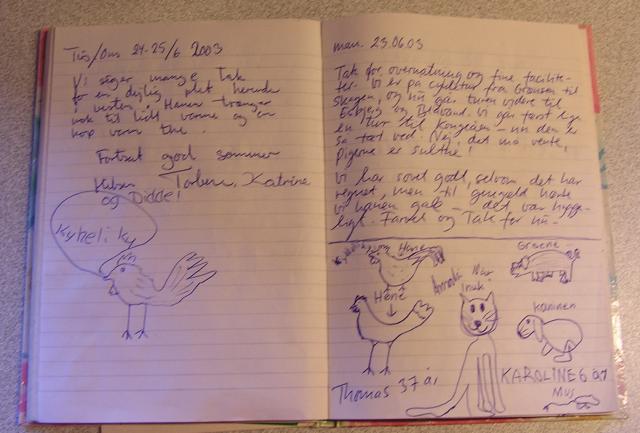 Tirs/Ons 24-25/6 2003
Vi siger mange tak
for en dejlig plet herude
i vesten. Hanen trænger
nok til lidt varme og en
kop varm the.
Fortsat god sommer
Hilsen Torben, Katrine
og Didde!
Kykeliky
man. 23.06.03
Tak for overnatning og fine facilite-
ter. Vi er på cykeltur fra Grenaa til
Skagen, og nu går turen videre til
Esbjerg og Blåvand. Vi
en tur til Kongeåen - nu den er
så tæt ved. (Nej, det må vente,
pigerne er sultne!
Vi har sovet godt, selvom det har
regnet, men til gengæld hørte
vi hanen gale - det var hygge-
ligt. Farvel og Tak for nu -
Hane
Grisene
Høne
Mis
Kaninen
Thomas 37 år
KAROLINE 6 år
Mus